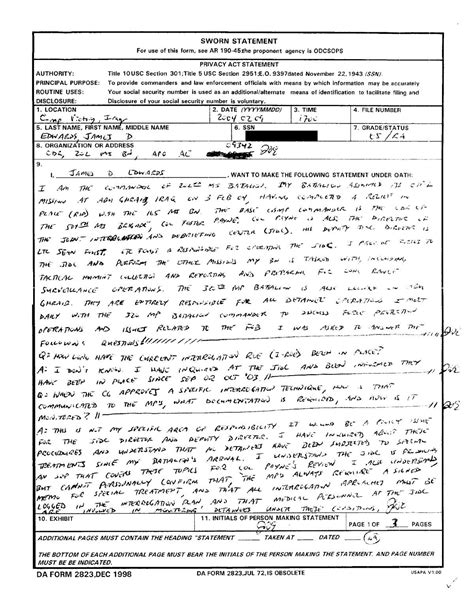 SWORN STATEMENT
For use of this form, see AR 190-45the proponent agency is ODCSOPS
PRIVACY ACT STATEMENT
AUTHORITY: Title 10USC Section 301;Title 5 USC Section 2951:E.O. 9397dated November 22, 1943 (SSN).
PRINCIPAL PURPOSE: To provide commanders and law enforcement officials with means by which information may be accurately
ROUTINE USES: Your social security number is used as an additional/alternate means of identification to facilitate filing and
DISCLOSURE: Disclosure of your social security number is voluntary.
1. LOCATION 2. DATE (YYYYMMDD) 3. TIME 4. FILE NUMBER
Camp Victory, Iraq 2004 02 09 1700
5. LAST NAME, FIRST NAME, MIDDLE NAME 6. SSN 7. GRADE/STATUS
EDWARDS, JAMES D.
8. ORGANIZATION OR ADDRESS
09342
9.
I, JAMES D EDWARDS , WANT TO MAKE THE FOLLOWING STATEMENT UNDER OATH:
I AM THE COMMANDER OF MI BATTALION. MY BATTALION ASSUMED ITS
MISSION AT ABU GHRAIB, IRAQ ON 3 FEB 04, HAVING COMPLETED A RELIEF IN
PLACE (RIP) WITH THE 165 MI BN. THE BASE CAMP COMMANDER IS THE
MI BRIGADE, COL FOSTER PAYNE. COL PAYNE IS ALSO THE DIRECTOR OF
THE JOINT INTERROGATION AND DEBRIEFING CENTER (JIDC). HIS DEPUTY JIDC DIRECTOR IS
LTC RESPONSIBLE FOR OPERATING THE JIDC. I PROVIDE TO
THE JIDC AND PERFORM THE OTHER MISSIONS MY BN IS TASKED WITH, INCLUDING,
TACTICAL HUMINT COLLECTION AND REPORTING AND PREPARING FOR LONG RANGE
SURVEILLANCE OPERATIONS. THE MP BATTALION IS ALSO LOCATED ON ABU
GHRAIB. THEY ARE ENTIRELY RESPONSIBLE FOR ALL DETAINEE OPERATIONS. I MEET
DAILY WITH THE MP BATTALION COMMANDER TO DISCUSS FORCE PROTECTION
OPERATIONS AND ISSUES RELATED TO THE FOB. I WAS ASKED TO ANSWER THE
FOLLOWING QUESTIONS
Q: HOW LONG HAVE THE CURRENT INTERROGATION ROE (I-ROE) BEEN IN PLACE?
A: I DON'T KNOW. I HAVE INQUIRED AT THE JIDC AND BEEN INFORMED THEY
HAVE BEEN IN PLACE SINCE SEP OR OCT '03.
Q: WHEN THE CG APPROVES A SPECIFIC INTERROGATION TECHNIQUE, HOW IS THAT
COMMUNICATED TO THE MPS, WHAT DOCUMENTATION IS REQUIRED, AND HOW IS IT
MONITORED?
A: THIS IS NOT MY SPECIFIC AREA OF RESPONSIBILITY. IT WOULD BE A POLICY ISSUE
FOR THE JIDC DIRECTOR AND DEPUTY DIRECTOR. I HAVE INQUIRED ABOUT THESE
PROCEDURES AND UNDERSTAND THAT NO DETAINEES HAVE BEEN SUBJECTED TO SPECIAL
TREATMENTS SINCE MY BATTALION'S ARRIVAL. I UNDERSTAND THE JIDC IS
AN SOP THAT COVERS THESE TOPICS FOR COL PAYNE'S REVIEW. I ALSO UNDERSTAND,
BUT CANNOT PERSONALLY CONFIRM THAT, THE MPS ALWAYS REQUIRE A SIGNED
MEMO FOR SPECIAL TREATMENT, AND THAT ALL INTERROGATION APPROACHES MUST BE
LOGGED IN THE INTERROGATION PLAN AND THAT MEDICAL PERSONNEL AT THE JIDC
ARE INVOLVED IN MONITORING DETAINEES UNDER THESE CONDITIONS.
10. EXHIBIT 11. INITIALS OF PERSON MAKING STATEMENT PAGE 1 OF 3 PAGES
ADDITIONAL PAGES MUST CONTAIN THE HEADING "STATEMENT TAKEN AT DATED
THE BOTTOM OF EACH ADDITIONAL PAGE MUST BEAR THE INITIALS OF THE PERSON MAKING THE STATEMENT, AND PAGE NUMBER
MUST BE BE INDICATED.
DA FORM 2823,DEC 1998 DA FORM 2823,JUL 72,IS OBSOLETE USAPA V1.00